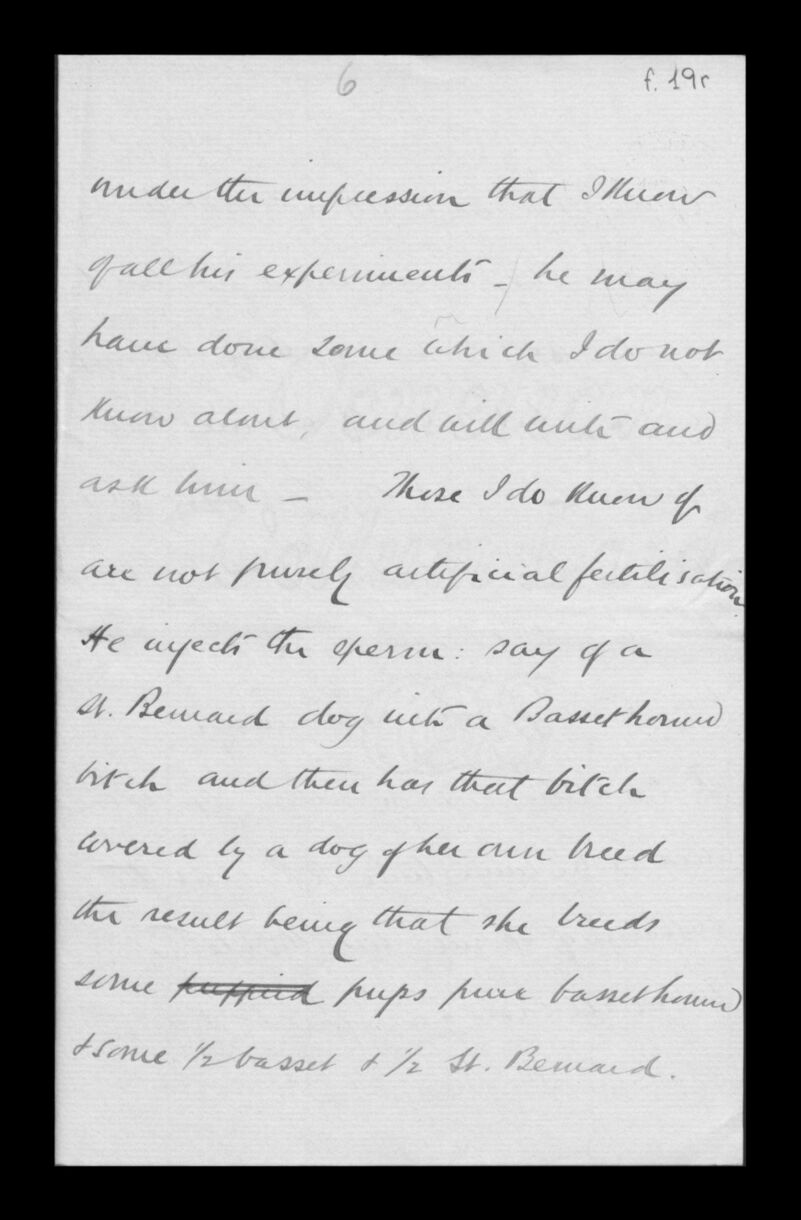 6
f. 19r
under the impression that I know
of all his experiments - he may
have done some which I do not
know about, and will write and
ask him - Those I do know of
are not purely artificial fertilisation.
He injects the sperm: say of a
St. Bernard dog into a Bassethound
bitch and then has that bitch
covered by a dog of her own breed
the result being that she breeds
some puppied pups pure bassethound
& some ½ basset & ½ St. Bernard.